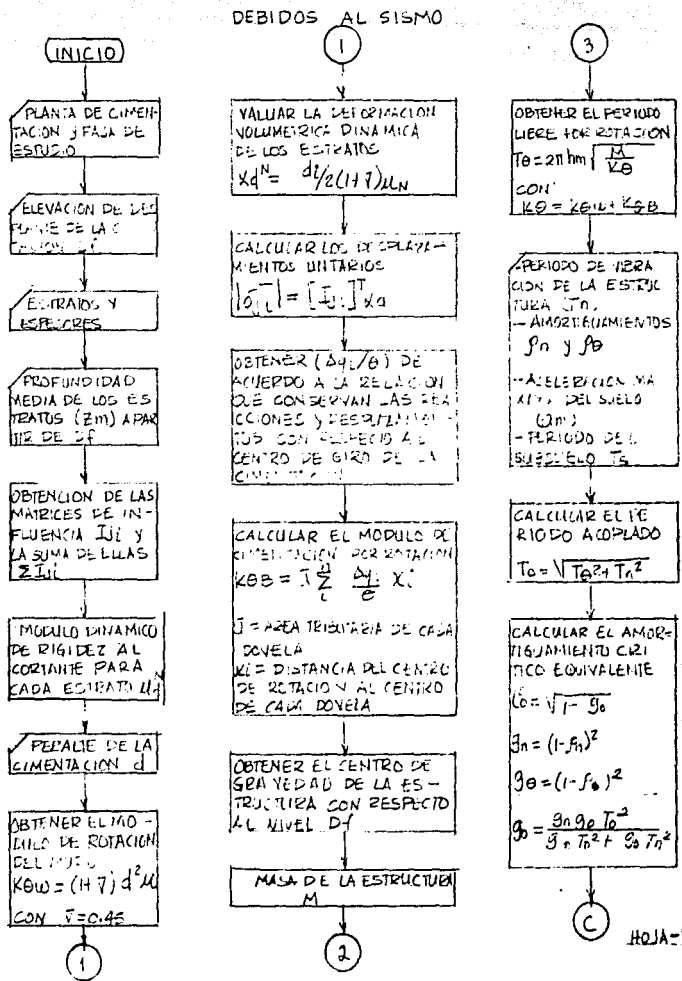 DEBIDOS AL SISMO
INICIO
PLANTA DE CIMEN-
TACIÓN Y FAJA DE
ESTUDIO
ELEVACIÓN DE DES
PLANTE DE LA
Df
ESTRATOS Y
ESPESORES
PROFUNDIDAD
MEDIA DE LOS ES
TRATOS (Zm) A PAR
TIR DE Df
OBTENCION DE LAS
MATRICES DE IN-
FLUENCIA Iji Y
LA SUMA DE ELLAS
Σ Iji
MODULO DINAMICO
DE RIGIDEZ AL
CORTANTE PARA
CADA ESTRATO
PERALTE DE LA
CIMENTACION d
OBTENER EL MO-
DULO DE ROTACION
DEL
Kθw = (1+ν̄) d²μ
CON ν̄=0.45
1
1
VALUAR LA DEFORMACION
VOLUMETRICA DINAMICA
DE LOS ESTRATOS
αd^N = di/2(1+ν̄)μN
CALCULAR LOS DESPLAZA-
MIENTOS UNITARIOS
= [Iji]^T αd
OBTENER (Δyi/θ) DE
ACUERDO A LA RELACION
QUE CONSERVAN LAS REA
CCIONES Y DESPLAZAMIEN-
TOS CON RESPECTO AL
CENTRO DE GIRO DE LA
CALCULAR EL MODULO DE
CIMENTACION POR ROTACION
KθB = ā Σ Δyi/θ Xi
= AREA TRIBUTARIA DE CADA
DOVELA
Xi = DISTANCIA DEL CENTRO
DE ROTACION AL CENTRO
DE CADA DOVELA
OBTENER EL CENTRO DE
GRAVEDAD DE LA ES-
TRUCTURA CON RESPECTO
AL NIVEL Df
MASA DE LA ESTRUCTURA
M
2
3
OBTENER EL PERIODO
LIBRE POR ROTACION
Tθ = 2π hm √(M/Kθ)
CON
Kθ = Kθw + KθB
-PERIODO DE VIBRA
CION DE LA ESTRUC
TURA Tn.
- AMORTIGUAMIENTOS
ρn y ρθ
-ACELERACION MA
XIMA DEL SUELO
(am)
- PERIODO DEL
SUBSUELO Ts
CALCULAR EL PE
RIODO ACOPLADO
To = √(Tθ²+Tn²)
CALCULAR EL AMOR-
TIGUAMIENTO CRI
TICO EQUIVALENTE
= √(1-go)
gn = (1-ρn)²
gθ = (1-ρθ)²
go = gn gθ To² / gn Tθ² + gθ Tn²
C
HOJA=